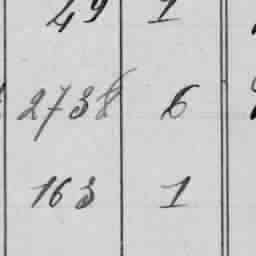 49 1
2738 6
163 1